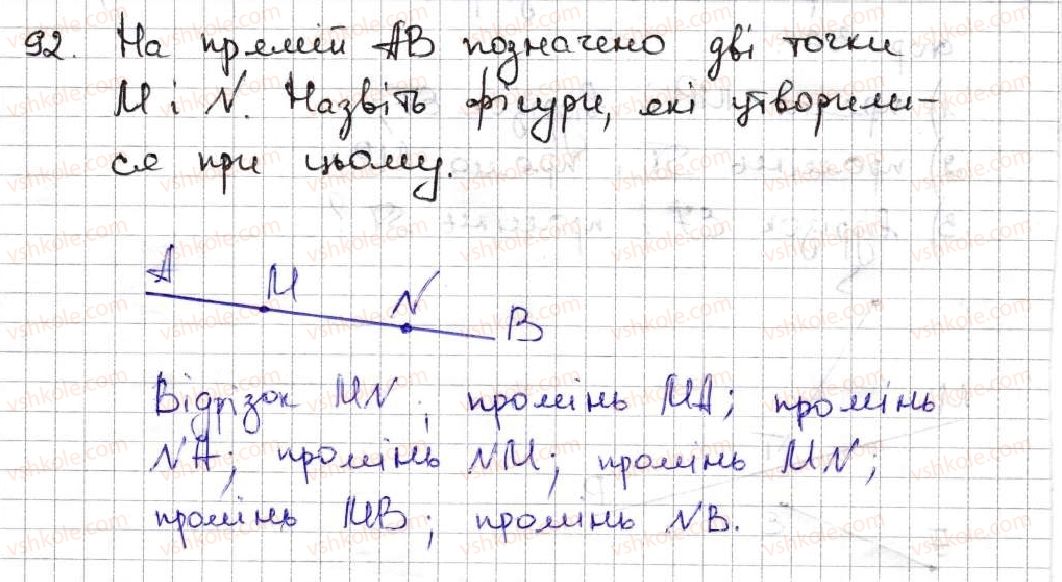 92. На прямій AB позначено дві точки
M і N. Назвіть фігури, які утворили-
ся при цьому.
A M N B
Відрізок MN; промінь MA; промінь
NA; промінь NM; промінь MN;
промінь MB; промінь NB.